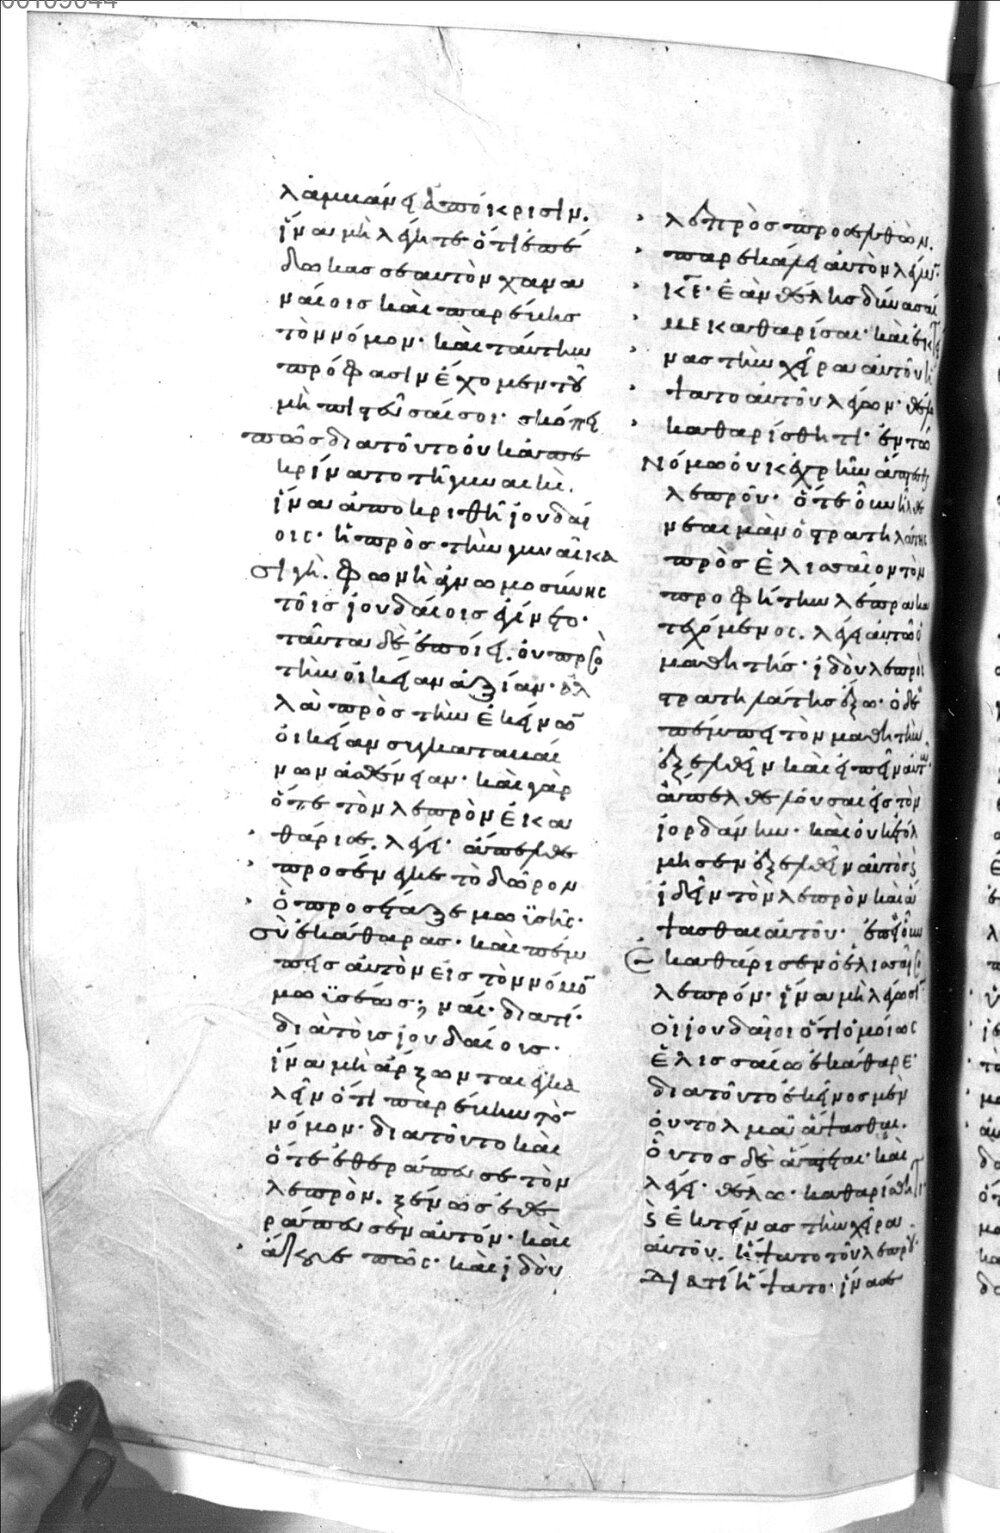 λαμβάνει ἀπόκρισιν.
ἵνα μὴ λέγητε ὅτι ἐπέ
δωκας σεαυτὸν χανα
ναίοις καὶ παρέβης
τὸν νόμον· καὶ ταύτην
πρόφασιν ἔχομεν τοῦ
μὴ πιστεῦσαί σοι· σκόπει
πῶς διατοῦτο οὐκ ἀπε
κρίνατο τῆ γυναικὶ.
ἵνα ἀποκριθῆ ἰουδαί
οις· ἡ πρὸς τὴν γυναῖκα
σιγὴ. φωνὴ ἀγνωμοσύνης
τοῖς ἰουδαίοις ἐγίνετο·
ταῦτα δὲ ἐποίει. οὐ πρὸς
τὴν οἰκείαν ἀξίαν· ἀλ
λὰ πρὸς τὴν ἐκείνων
οἰκείαν συγκαταβαί
νων ἀσθένειαν· καὶ γὰρ
ὅτε τὸν λεπρὸν ἐκα
θάρισε. λέγει· ἄπελθε
προσένεγκε τὸ δῶρον
ὃ προσέταξε μωϊσῆς·
σὺ ἐκάθαρας· καὶ πέμ
πεις αὐτὸν εἰς τὸν νόμον
μωϊσέως; ναί· διατί·
διὰ τοὺς ἰουδαίους·
ἵνα μὴ ἄρξωνται ἐγκα
λεῖν ὅτι παρέβην τὸν
νόμον· διατοῦτο καὶ
ὅτε ἐθεράπευσε τὸν
λεπρὸν. ξένως ἐθε
ράπευσεν αὐτόν· καὶ
ἄκουε πῶς· καὶ ἰδοὺ
λεπρὸς προσελθὼν.
παρεκάλει αὐτὸν λέγων·
κε· ἐὰν θέλης δύνασαί
με καθαρίσαι· καὶ ἐκτεί
νας τὴν χεῖρα αὐτοῦ ἥ
ψατο αὐτοῦ λέγων· θέλω
καθαρίσθητι· ἐν τῶ
νόμω οὐκ ἐχρῆν ἅπτεσθαι
λεπροῦ· ὅτε οὖν ἦλθε
νεαιμὰν ὁ στρατηλάτης
πρὸς ἐλισσαῖον τὸν
προφήτην λέπρα κα
τεχόμενος. λέγει αὐτῶ ὁ
μαθητής· ἰδοὺ λεπρὸς
στρατηλάτης ἔξω· ὁ δὲ
πέμπει τὸν μαθητὴν
ἐξελθεῖν καὶ εἰπεῖν αὐτῶ·
ἄπελθε λοῦσαι εἰς τὸν
ἰορδάνην· καὶ οὐκ ἐτόλ
μησεν ἐξελθεῖν αὐτὸς
ἰδεῖν τὸν λεπρὸν καὶ ἅ
ψασθαι αὐτοῦ· ἐπεὶ οὖν
ἐκαθάρισεν ὁ ἐλισσαῖος
λεπρόν· ἵνα μὴ λέγωσιν
οἱ ἰουδαῖοι ὅτι ὁμοίως
ἐλισσαίω ἐκάθαρε·
διατοῦτο ἐκεῖνος μὲν
οὐ τολμᾶ ἅψασθαι.
οὗτος δὲ ἅπτεται· καὶ
λέγει· θέλω. καθαρίσθητι·
καὶ ἐκτείνας τὴν χεῖρα
αὐτοῦ. ἥψατο τοῦ λεπροῦ·
διατί ἥψατο· ἵνα σε